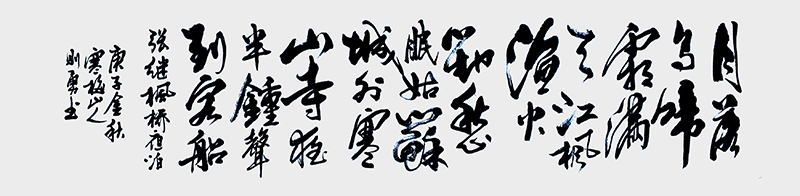 月落
乌啼
霜满
天江枫
渔火
对愁
眠姑苏
城外寒
山寺夜
半钟声
到客船
张继枫桥夜泊
庚子金秋
寒梅山人
则勇书